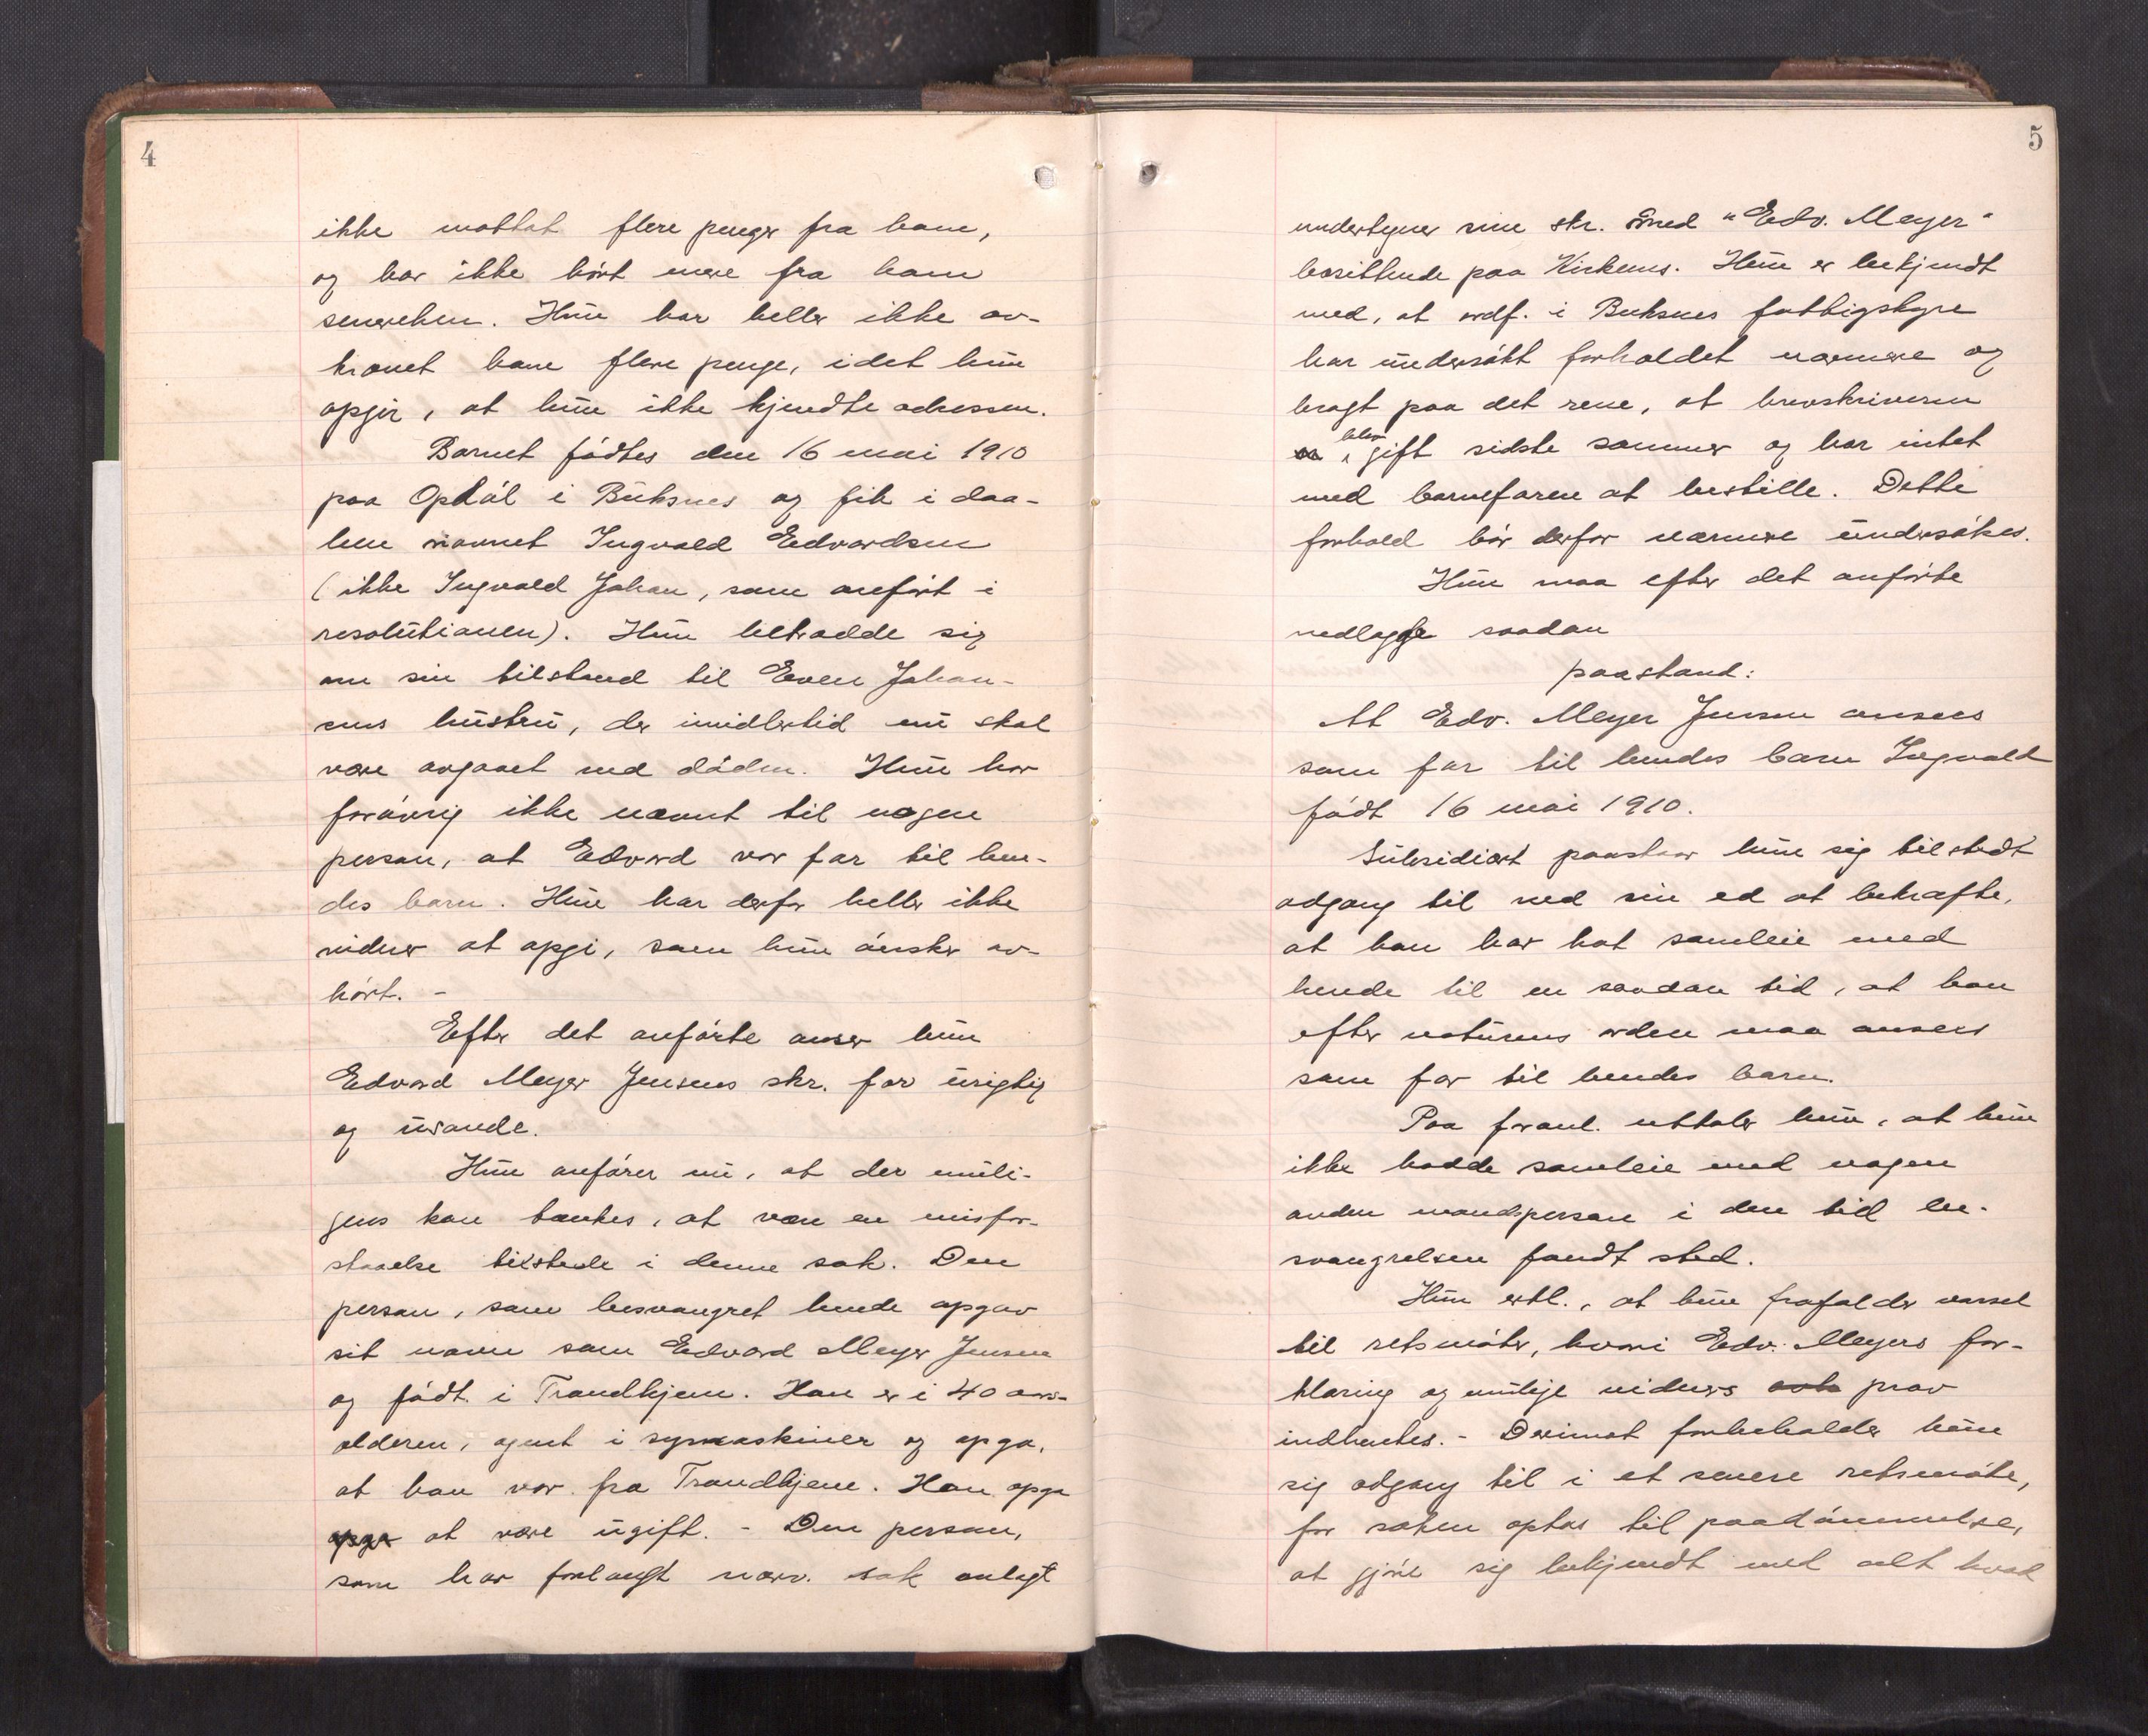 4
ikke mottat flere penger fra ham,
og har ikke hørt mere fra ham
senerehen. Hun har heller ikke av-
krævet ham flere penge, idet hun
opgir, at hun ikke kjendte adressen.
Barnet fødtes den 16 mai 1910
paa Opdøl i Buksnes og fik i daa-
ben navnet Ingvald Edvardsen
(ikke Ingvald Johan, som anført i
resolutionen). Hun betrodde sig
om sin tilstand til Even Johan-
sens hustru, der imidlertid nu skal
være avgaaet ved døden. Hun har
forøvrig ikke nævnt til nogen
person, at Edvard var far til hen-
des barn. Hun har derfor heller ikke
vidner at opgi, som hun ønsker av-
hørt. -
Efter det anførte anser hun
Edvard Meyer Jensens skr. for urigtig
og usande.
Hun anfører nu, at der muli-
gens kan tænkes, at være en misfor-
staaelse tilstede i denne sak. Den
person, som besvangret hende opgav
sit navn som Edvard Meyer Jensen
og født i Trondhjem. Han er i 40 aars-
alderen, agent i symaskiner og opga,
at han var fra Trondhjem. Han opga
opga at være ugift. - Den person,
som har forlangt nærv. sak anlagt
5
undertegner sine skr. med "Edv. Meyer"
bosittende paa Kirkenes. Hun er bekjendt
med, at ordf. i Buksnes fattigstyre
har undersøkt forholdet nærmere og
bragt paa det rene, at brevskriveren
blev
er gift sidste sommer og har intet
med barnefaren at bestille. Dette
forhold bør derfor nærmere undersøkes.
Hun maa efter det anførte
nedlægge saadan
paastand:
At Edv. Meyer Jensen ansees
som far til hendes barn Ingvald
født 16 mai 1910.
Subsidiært paastaar hun sig tilstedt
adgang til med sin ed at bekræfte,
at han har hat samleie med
hende til en saadan tid, at han
efter naturens orden maa ansees
som far til hendes barn.
Paa foranl. uttaler hun, at hun
ikke hadde samleie med nogen
anden mandsperson i den tid be-
svangrelsen fandt sted.
Hun erkl., at hun frafalder varsel
til retsmøter, hvori Edv. Meyers for-
klaring og mulige vidners prov
indhentes. - Derimot forbeholder hun
sig adgang til i et senere retsmøte,
før saken optas til paadømmelse,
at gjøre sig bekjendt med alt hvad